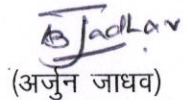 BJadhav
(अर्जुन जाधव)